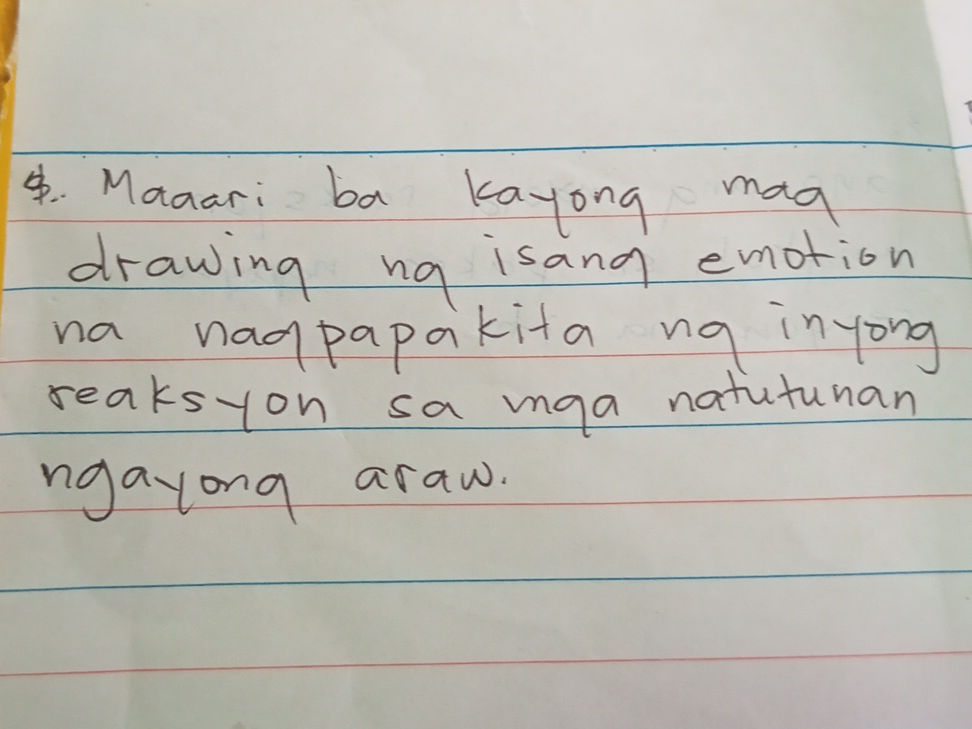 Maaari ba kayong mag
drawing ng isang emotion
na nagpapakita ng inyong
reaksyon sa mga natutunan
ngayong araw.